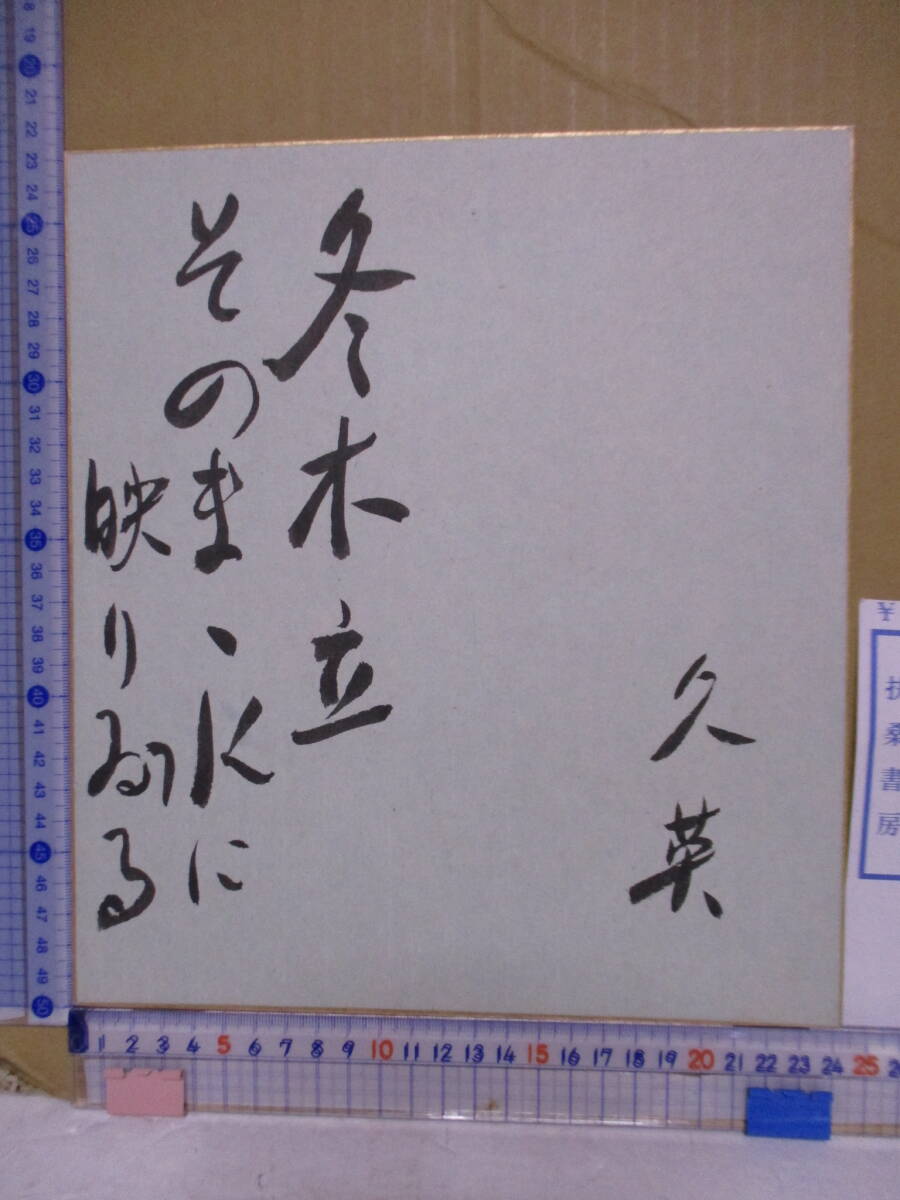 冬木立
そのまゝ水に
映りゐる
久英
¥
扶桑書房
18 19 20 21 22 23 24 25 26 27 28 29 30 31 32 33 34 35 36 37 38 39 40 41 42 43 44 45 46 47 48 49 50
1 2 3 4 5 6 7 8 9 10 11 12 13 14 15 16 17 18 19 20 21 22 23 24 25